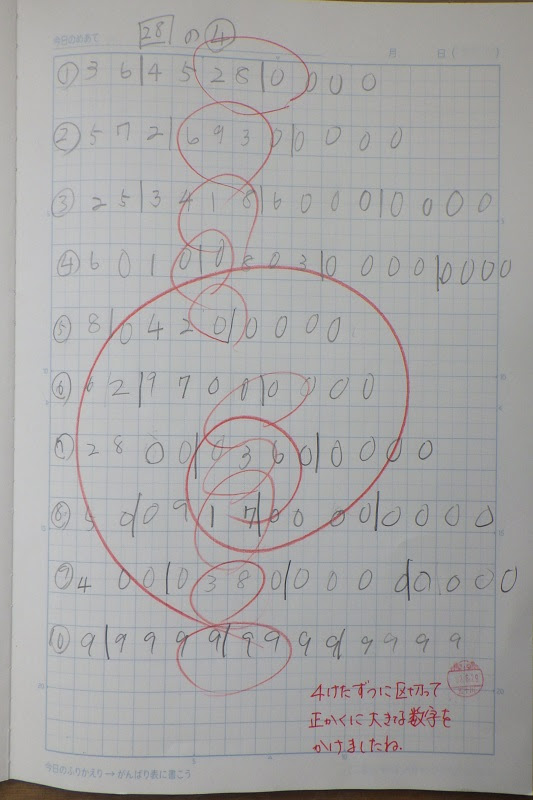 28 の ④
今日のめあて 月 日( )
① 3 6 | 4 5 2 8 | 0 0 0 0
② 5 7 2 | 6 9 3 0 | 0 0 0 0
③ 2 5 | 3 4 1 8 | 6 0 0 0 | 0 0 0 0
④ 6 0 1 0 | 0 8 0 3 | 0 0 0 0 | 0 0 0 0
⑤ 8 | 0 4 2 0 | 0 0 0 0
⑥ 6 2 | 9 7 0 0 | 0 0 0 0
⑦ 2 8 0 0 | 0 3 6 0 | 0 0 0 0
⑧ 5 0 | 0 9 1 7 | 0 0 0 0 | 0 0 0 0
⑨ 4 0 0 | 0 3 8 0 | 0 0 0 0 | 0 0 0 0
⑩ 9 | 9 9 9 9 | 9 9 9 9 | 9 9 9 9
4けたずつに区切って
正かくに大きな数字を
かけましたね。
今日のふりかえり→がんばり表に書こう